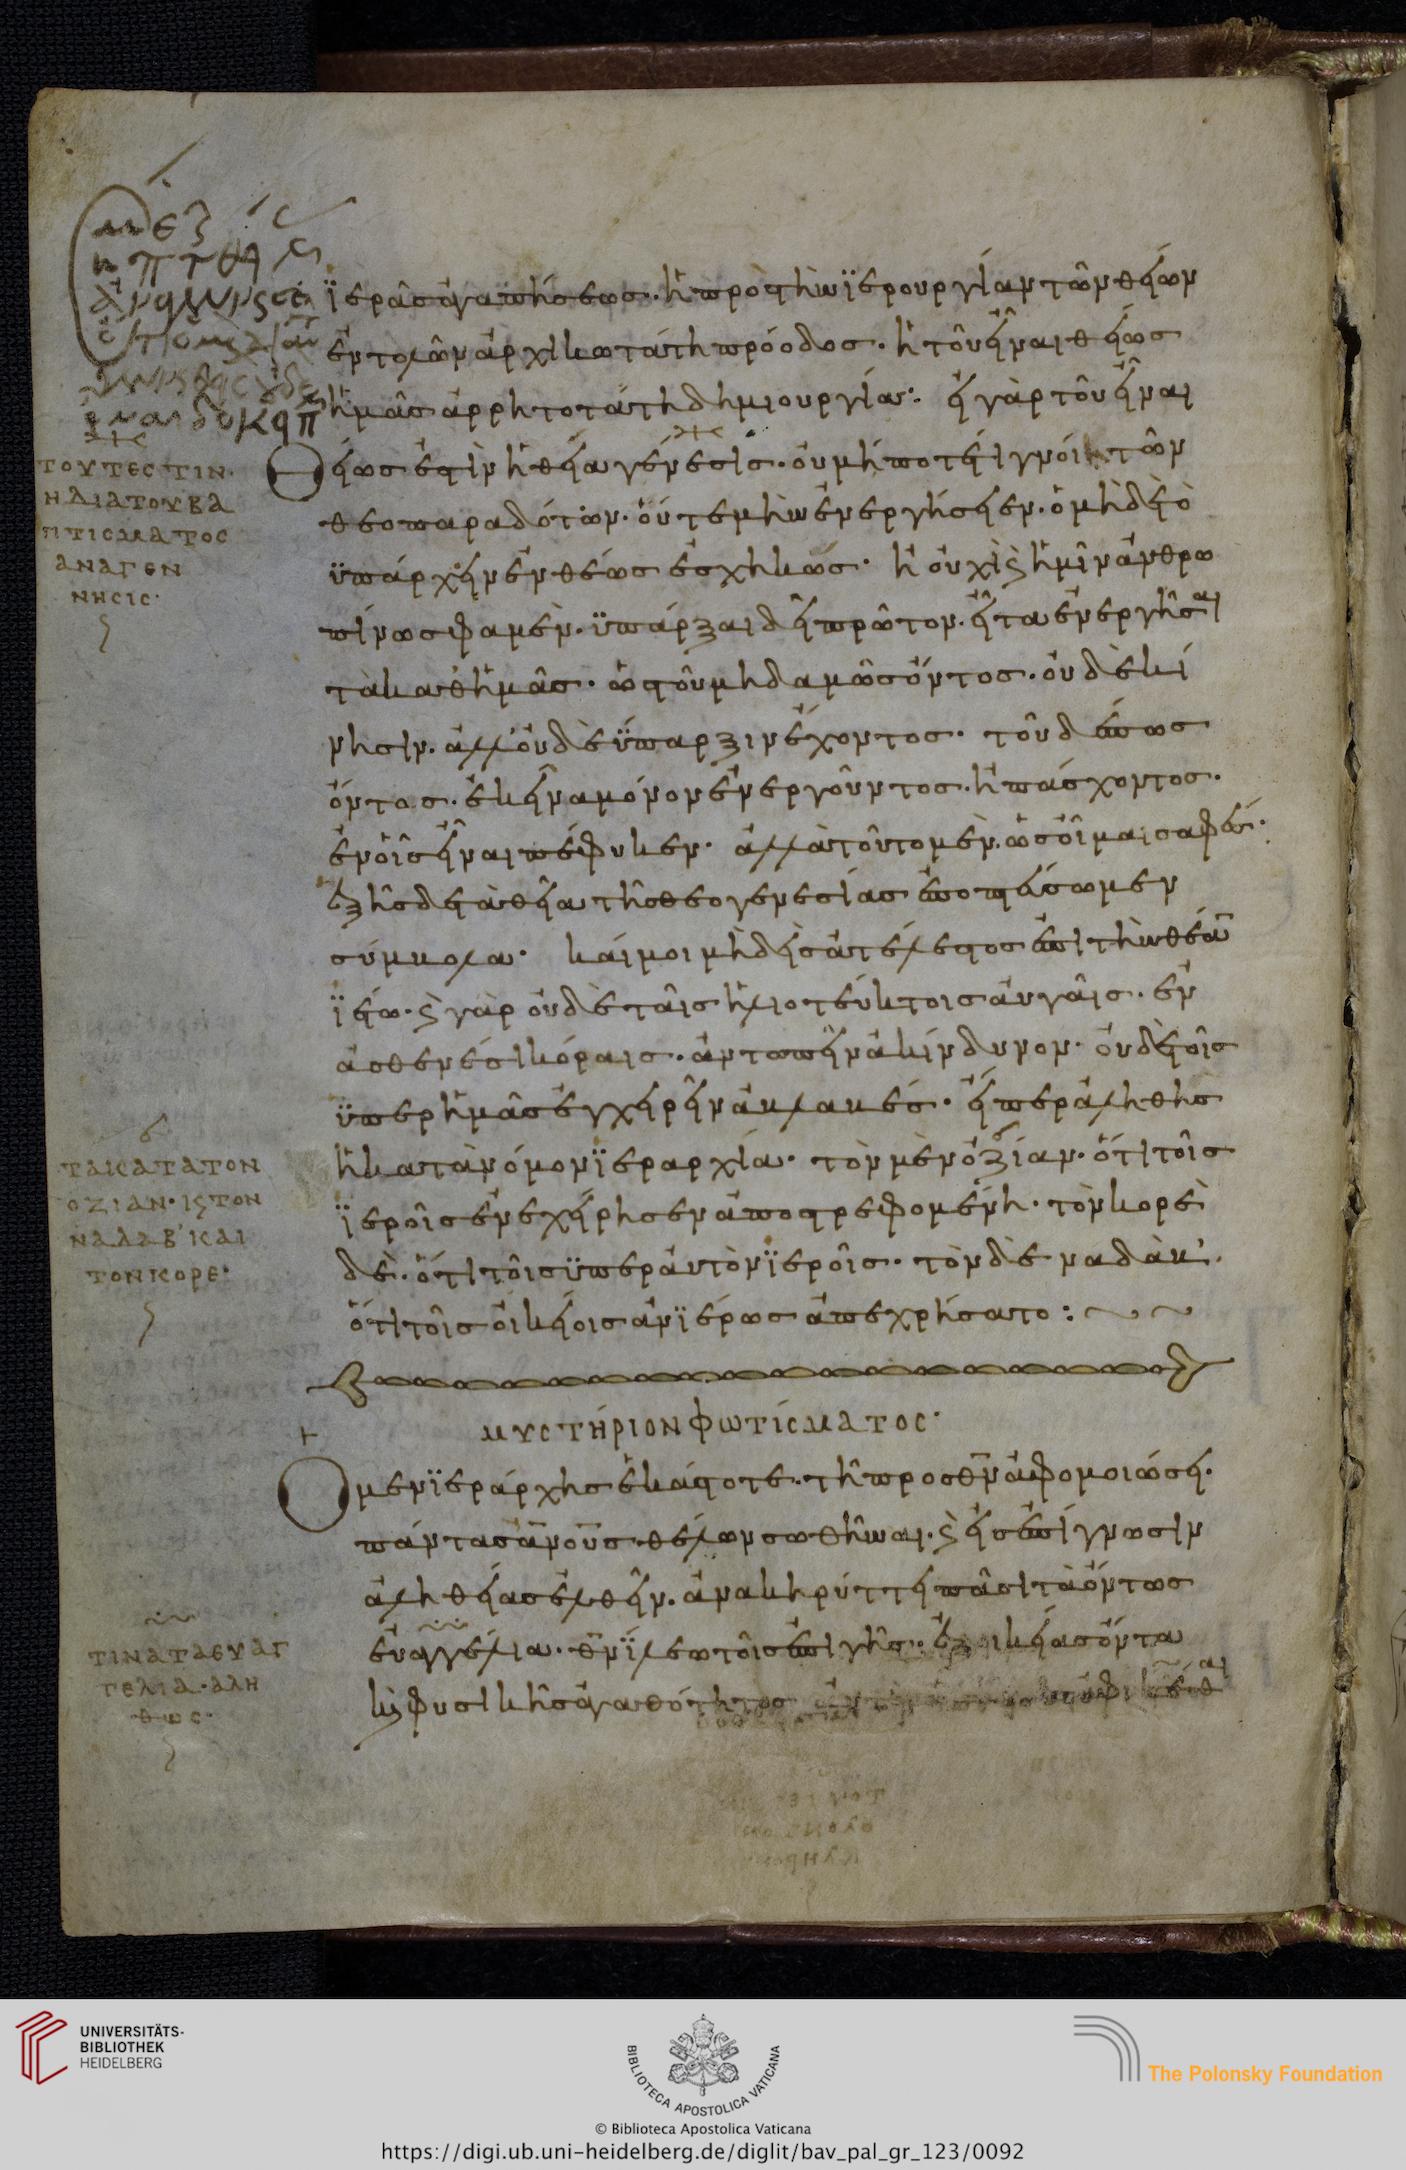 ϊερᾶς ἀγαπήσεως· ἡ πρὸς τὴν ϊερουργίαν τῶν θείων
ἐντολῶν ἀρχικωτάτη πρόοδος· ἡ τοῦ εἶναι θείως
ἡμᾶς ἀρρητοτάτη δημιουργία· εἰ γὰρ τοῦ εἶναι
Θείως ἐστὶν ἡ θεία γένεσις· οὐ μήποτέ τι γνοίη τῶν
θεοπαραδότων· οὔτε μὴν ἐνεργήσειεν· ὁ μὴδὲ τὸ
ϋπάρχειν ἐνθέως ἐσχηκώς· ἢ οὐχὶ ϗ ἡμῖν ἀνθρω
πίνως φαμεν· ϋπάρξαι δεῖ πρῶτον· εἶτα ἐνεργῆσαι
τὰ καθ' ἡμᾶς· ὡς τοῦ μηδαμῶς ὄντος· οὐδὲ κί
νησιν· ἀλλ' οὐδὲ ϋπαρξιν ἔχοντος· τοῦ δέ πως
ὄντος· ἐκεῖνα μόνον ἐνεργοῦντος· ἢ πάσχοντος·
ἐν οἷς εἶναι πέφυκεν· ἀλλὰ τοῦτο μὲν· ὡς οἶμαι σαφές·
ἑξῆς δε τὰ θεῖα τῆς θεογενεσίας ἐποπτεύσωμεν
σύμβολα· καί μοι μὴδεὶς ἀτέλεστος ἐπὶ τὴν θέαν
ϊέτω· ϗ γὰρ οὐδὲ ταῖς ἡλιοτεύκτοις αὐγαῖς· ἐν
ἀσθενέσι κόραις· ἀντωπεῖν ἀκίνδυνον· οὐδὲ τοῖς
ϋπερ ἡμᾶς ἐγχειρεῖν ἀβλαβές· εἴπερ ἀληθὴς
ἡ κατὰ νόμον ϊεραρχία· τὸν μὲν ὀζίαν· ὅτι τοῖς
ϊεροῖς ἐνεχείρησεν ἀποστρεφομένη· τὸν κορὲ
δὲ· ὅτι τοῖς ϋπερ αὐτὸν ϊεροῖς· τὸν δὲ ναδὰβ'·
ὅτι τοῖς οἰκείοις ἀνϊέρως ἀπεχρήσατο:
ΜΥΣΤΉΡΙΟΝ ΦΩΤΊΣΜΑΤΟΣ·
Ο μεν ϊεράρχης ἑκάστοτε· τῆ προς θν ἀφομοιώσει·
πάντας ανους θέλων σωθῆναι· ϗ εἰς ἐπίγνωσιν
ἀληθείας ἐλθεῖν· ἀνακηρύττει πᾶσι τὰ ὄντως
εὐαγγέλια· θν ϊλεω τοῖς ἐπι γῆς· ἐξ οἰκείας ὄντα
ϗ φυσικῆς ἀγαθότητος
ΤΟΥΤΕΣΤΙΝ·
Η ΔΙΑ ΤΟΥ ΒΑ
ΠΤΙΣΜΑΤΟΣ
ΑΝΑΓΕΝ
ΝΗΣΙΣ·
ΤΑ ΚΑΤΑ ΤΟΝ
ΟΖΙΑΝ· Κ ΤΟΝ
ΝΑΔΑΒ' ΚΑΙ
ΤΟΝ ΚΟΡΕ·
ΤΙΝΑ ΤΑ ΕΥΑΓ
ΓΕΛΙΑ· ΑΛΗ
ΘΩΣ·
UNIVERSITÄTS-
BIBLIOTHEK
HEIDELBERG
BIBLIOTECA APOSTOLICA VATICANA
The Polonsky Foundation
© Biblioteca Apostolica Vaticana
https://digi.ub.uni-heidelberg.de/diglit/bav_pal_gr_123/0092